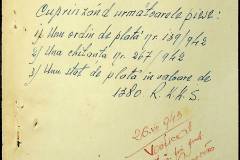 Cuprinzând următoarele piese:
1/ Un ordin de plată nr. 139/942
2/ Una chitanță nr. 267/942
3/ Un stat de plată în valoare de
1380. R.K.K.S.
26.VI.943